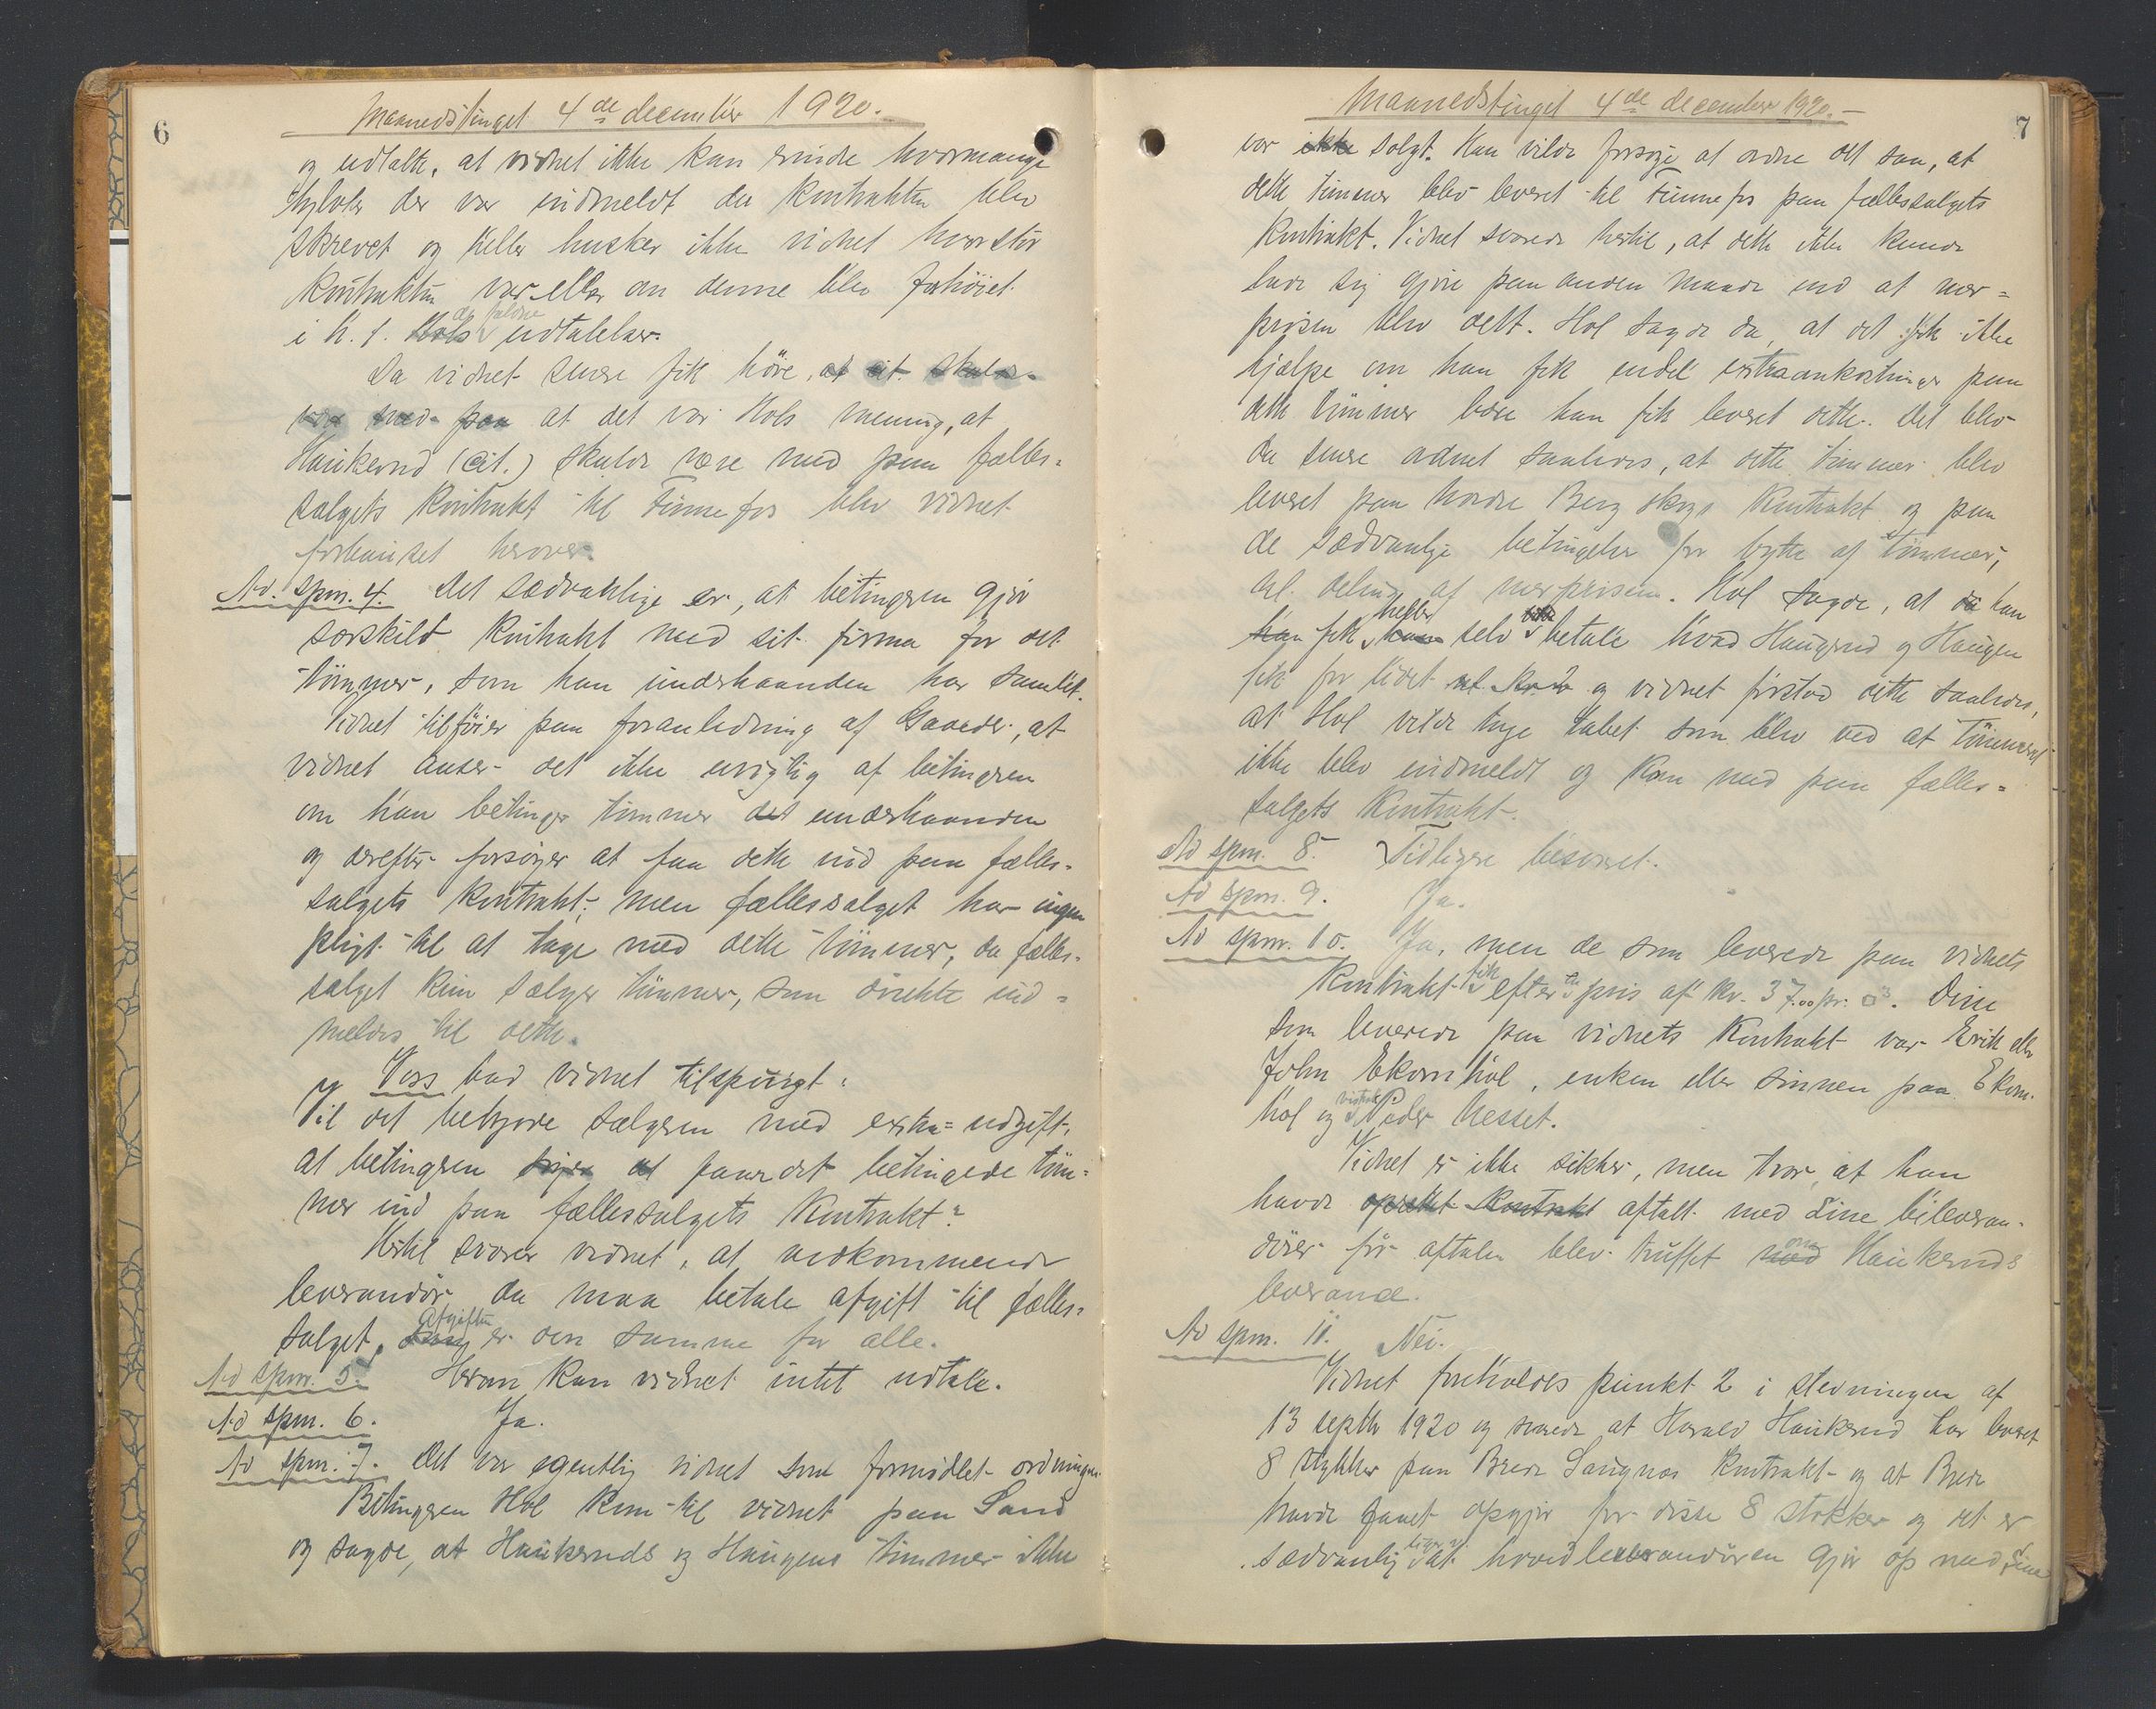 6
Maanedstinget 4de december 1920.
og udtalte, at vidnet ikke kan erindre hvormange
tylvter der var indmeldt da kontrakten blev
skrevet og heller husker ikke vidnet hvor stor
kontrakten var eller om denne blev forhöiet
i h. t. Hols da faldne udtalelser.
Da vidnet senere fik höre, at cit. skulde
være med paa at det var Hols mening, at
Haukerud (cit.) skulde være med paa fælles-
salgets kontrakt til Finnefos blev vidnet
forbauset herover.
Ad. spm. 4. Det sædvanlige er, at betingeren gjör
særskilt kontrakt med sit firma for det
tömmer, som han underhaanden har samlet.
Vidnet tilföier paa foranledning af Gaarder, at
vidnet anser det ikke urigtig af betingeren
om han betinger tömmer det underhaanden
og derefter forsöger at faa dette ind paa fælles-
salgets kontrakt; men fællessalget har ingen
pligt til at tage med dette tömmer, da fælles-
salget kun sælger tömmer, som direkte ind-
meldes til dette.
Voss bad vidnet tilspurgt:
Vil det bebyrde sælgeren med extra-udgift,
at betingeren at faar det betingede töm-
mer ind paa fællessalgets kontrakt?
Hertil svarer vidnet, at vedkommende
leverandör da maa betale afgift til fælles-
salget, Afgiften er den samme for alle.
Ad spm. 5. Herom kan vidnet intet udtale.
Ad spm. 6. Ja.
Ad spm. 7. Det var egentlig vidnet som formidlet ordningen.
Betingeren Hol kom til vidnet paa Sand
og sagde, at Haukeruds og Haugens tömmer ikke
7
Maanedstinget 4de december 1920.
var ikke solgt. Han vilde forsöge at ordne det saa, at
dette tömmer blev leveret til Finnefos paa fællessalgets
kontrakt. Vidnet svarede hertil, at dette ikke kunde
lade sig gjöre paa anden maade end at mer-
prisen blev delt. Hol sagde da, at det fik ikke
hjælpe om han fik endel extraomkostninger paa
dette tömmer bare han fik leveret dette. Det blev
da senere ordnet saaledes, at dette tömmer blev
leveret paa Nordre Berg skogs kontrakt og paa
de sædvanlige betingelser for bytte af tömmer,
deling af merprisen. Hol sagde, at da han
han fik heller selv betale hvad Haugerud og Haugen
fik for lidet og vidnet forstod dette saaledes,
at Hol vilde tage tabet som blev ved at tömmeret
ikke blev indmeldt og kom med paa fælles-
salgets kontrakt.
Ad spm. 8. Tidligere besvaret.
Ad spm. 9. Ja.
Ad spm. 10. Ja, men de som leverede paa vidnets
kontrakt fik efter en pris af kr. 37.00 pr. Disse
som leverede paa vidnets kontrakt var Erik eller
John Ekornhol, enken eller sönnen paa Ekorn-
hol og vistnok Peder Nesset.
Vidnet er ikke sikker, men tror, at han
havde oprettet kontrakt aftalt med sine bileveran-
dörer för aftalen blev truffet med om Haukeruds
leverance.
Ad spm. 11. Nei.
Vidnet foreholdes punkt 2 i stevningen af
13 septbr 1920 og svarede at Harald Haukerud har leveret
8 stykker paa Brede Saugnes kontrakt og at Brede
havde faaet opgjör for disse 8 stokker og det er
sædvanlig at hovedleverandören gjör op med sine